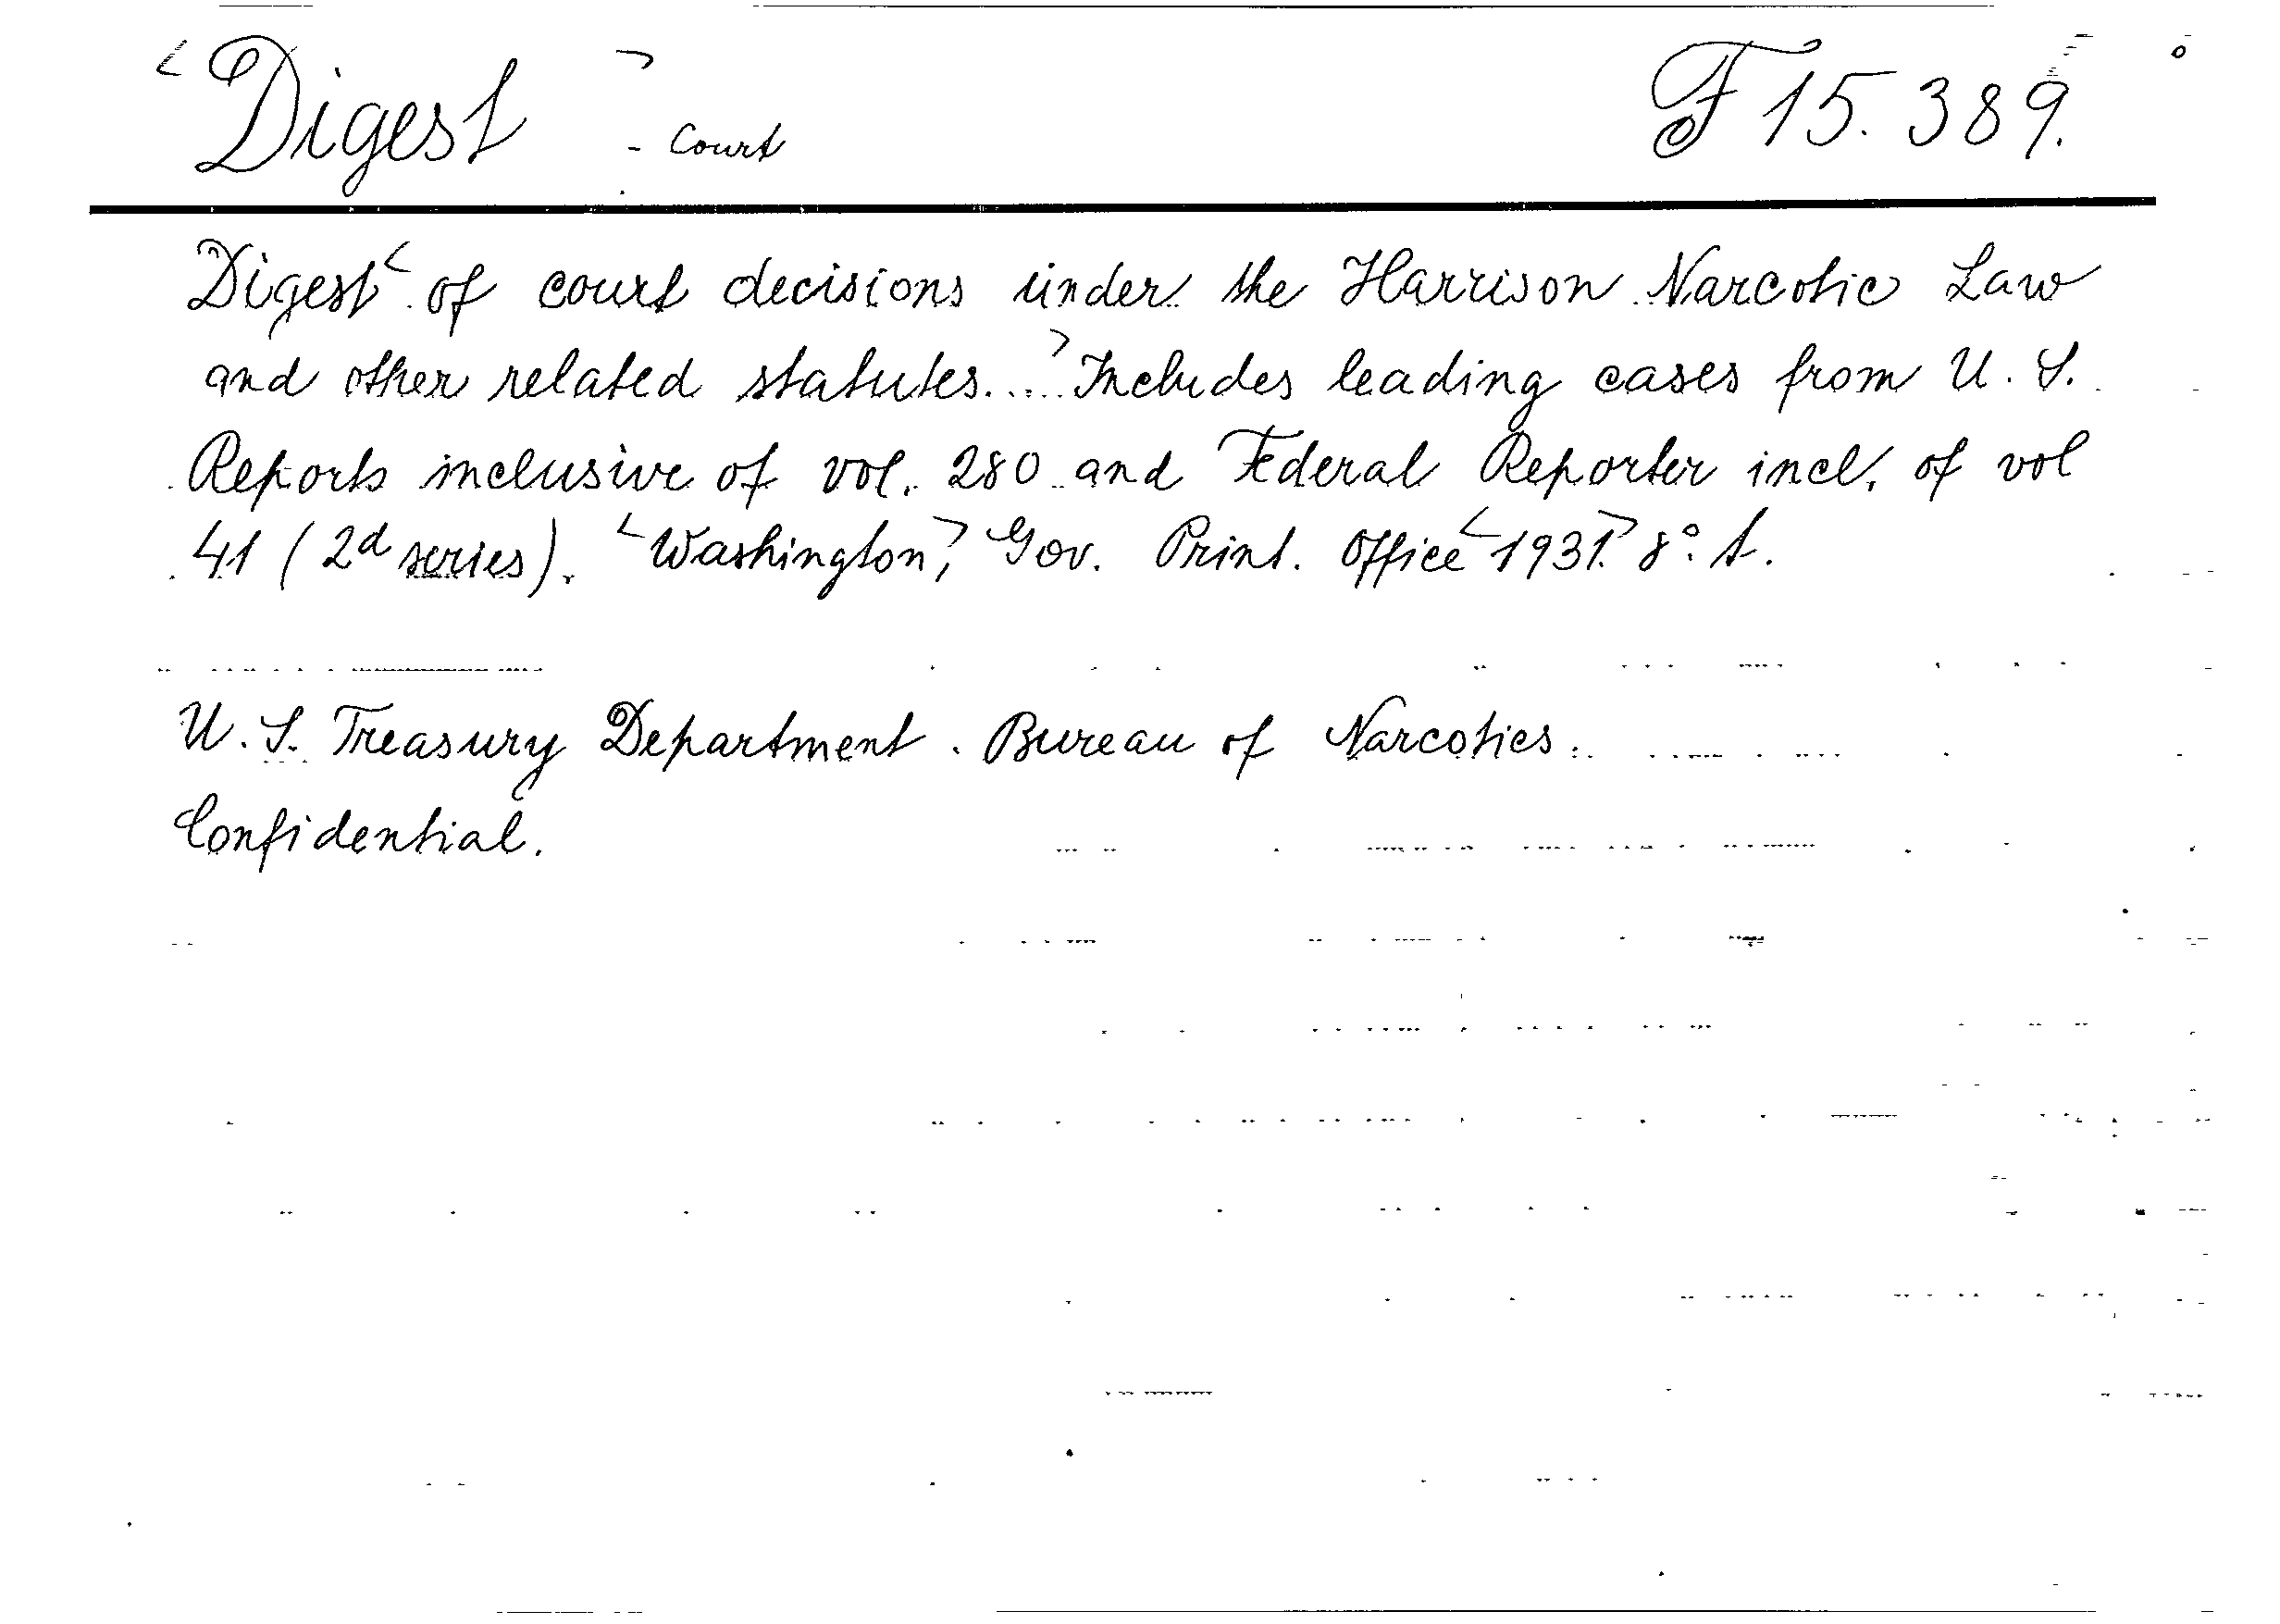 Digest - Court F 15.389.
Digest of court decisions under the Harrison Narcotic Law
and other related statutes.... Includes leading cases from U. S.
Reports inclusive of vol. 280 and Federal Reporter incl. of vol
41 (2d series). Washington, Gov. Print. Office 1931. 8° A.
U. S. Treasury Department. Bureau of Narcotics.
Confidential.